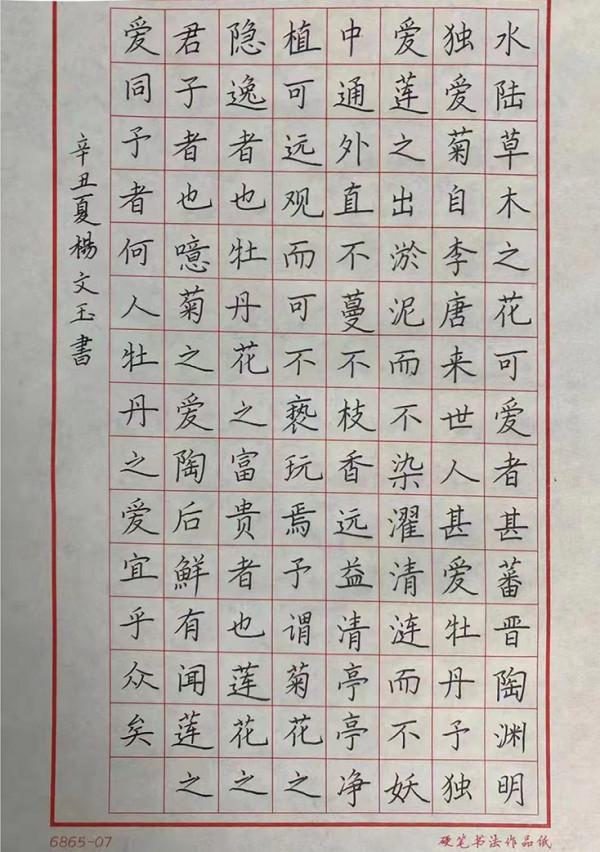 水陆草木之花可爱者甚蕃晋陶渊明
独爱菊自李唐来世人甚爱牡丹予独
爱莲之出淤泥而不染濯清涟而不妖
中通外直不蔓不枝香远益清亭亭净
植可远观而可不亵玩焉予谓菊花之
隐逸者也牡丹花之富贵者也莲花之
君子者也噫菊之爱陶后鲜有闻莲之
爱同予者何人牡丹之爱宜乎众矣
辛丑夏楊文玉書
6865-07
硬笔书法作品纸